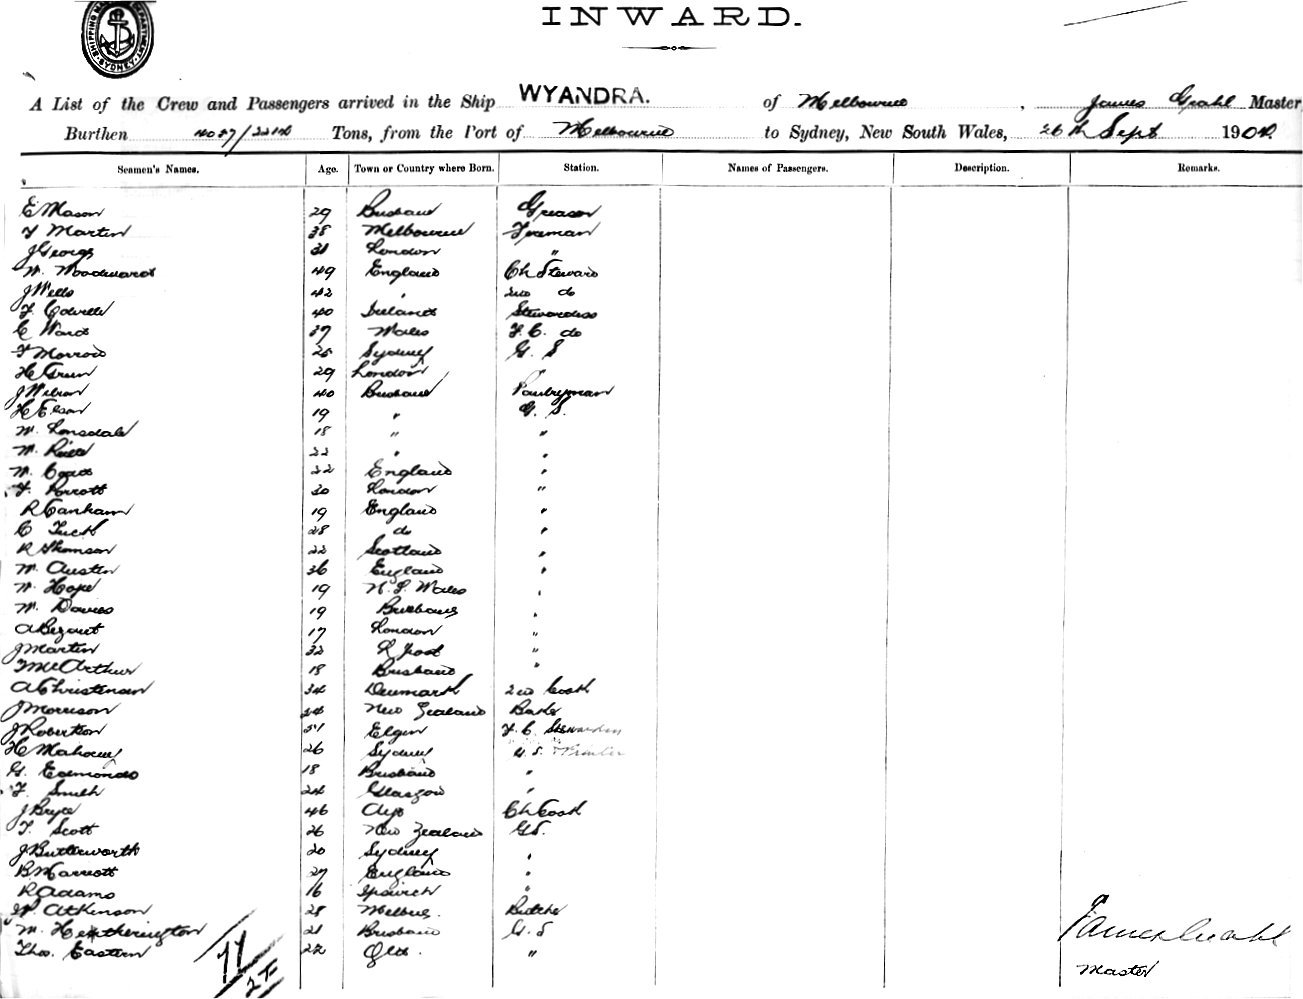 SHIPPING MASTER'S DEPARTMENT SYDNEY
INWARD.
A List of the Crew and Passengers arrived in the Ship WYANDRA. of Melbourne, James Grahl Master
Burthen Tons, from the Port of Melbourne to Sydney, New South Wales, 26th Sept 190
Seamen's Names. Age. Town or Country where Born. Station. Names of Passengers. Description. Remarks.
E Mason 29 Brisbane Greaser
F Martin 38 Melbourne Fireman
J George 31 London "
W. Woodward 49 England Ch Steward
J Wells 42 " 2nd do
F. Colville 40 Ireland Stewardess
C Ward 37 Wales F. C. do
F Morrow 25 Sydney G. S
H Green 29 London "
J Wilson 40 Brisbane Pantryman
H Elson 19 " G. S.
W. Lonsdale 18 " "
W. 22 " "
W. 22 England "
F. Porrott 30 London "
R Canham 19 England "
C Tuck 28 do "
R Thomson 22 Scotland "
W. Austen 36 England "
W. Hope 19 N. S. Wales "
W. Davies 19 Brisbane "
A Bezant 17 London "
J Martin 32 L'pool "
F McArthur 18 Brisbane "
A Christensen 34 Denmark 2nd Cook
J Morrison 24 New Zealand Baker
J Robertson 51 Elgin F. C. Stewardess
H Mahony 26 Sydney G. S.
G. Edmonds 18 Brisbane "
F. Smith 24 Glasgow "
J Bryce 46 Ayr Ch Cook
T. Scott 26 New Zealand GS.
J Butterworth 20 Sydney "
B Marriott 27 England "
R Adams 16 Ipswich "
W. Atkinson 28 Melbne. Butcher
W. Hetherington 21 Brisbane G. S
Thos. Eastern 22 Qld. "
77
James Grahl
Master